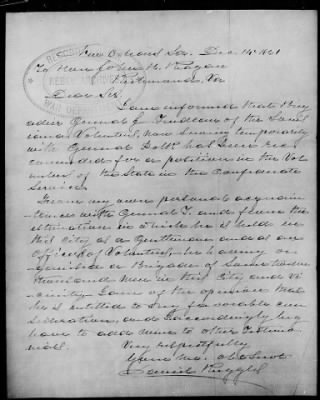 New Orleans La. Dec 14th 1861
To Hon John H. Reagan
Richmond, Va
Dear Sir,
I am informed that Brig
adier General J. Tindleau of the Louis
iana Volunteers, now serving temporarily
with General has been re
commended for a position in the Vol
unteers of the State in the Confederate
Service.
From my own personal acquain
tance with General T. and from the
estimation in which he is held in
this City as a Gentleman and as an
Officer of Volunteers, he having or
ganized a Brigade of
thousand men in this City and vi
cinity I am of the opinion that
he is entitled to very favorable con
sideration, and I accordingly beg
leave to add mine to other testimo
nials.
Very respectfully
Your mo. ob. Servt
Daniel Ruggles
RECORD
REBEL ARCHIVES
WAR DEPARTMENT